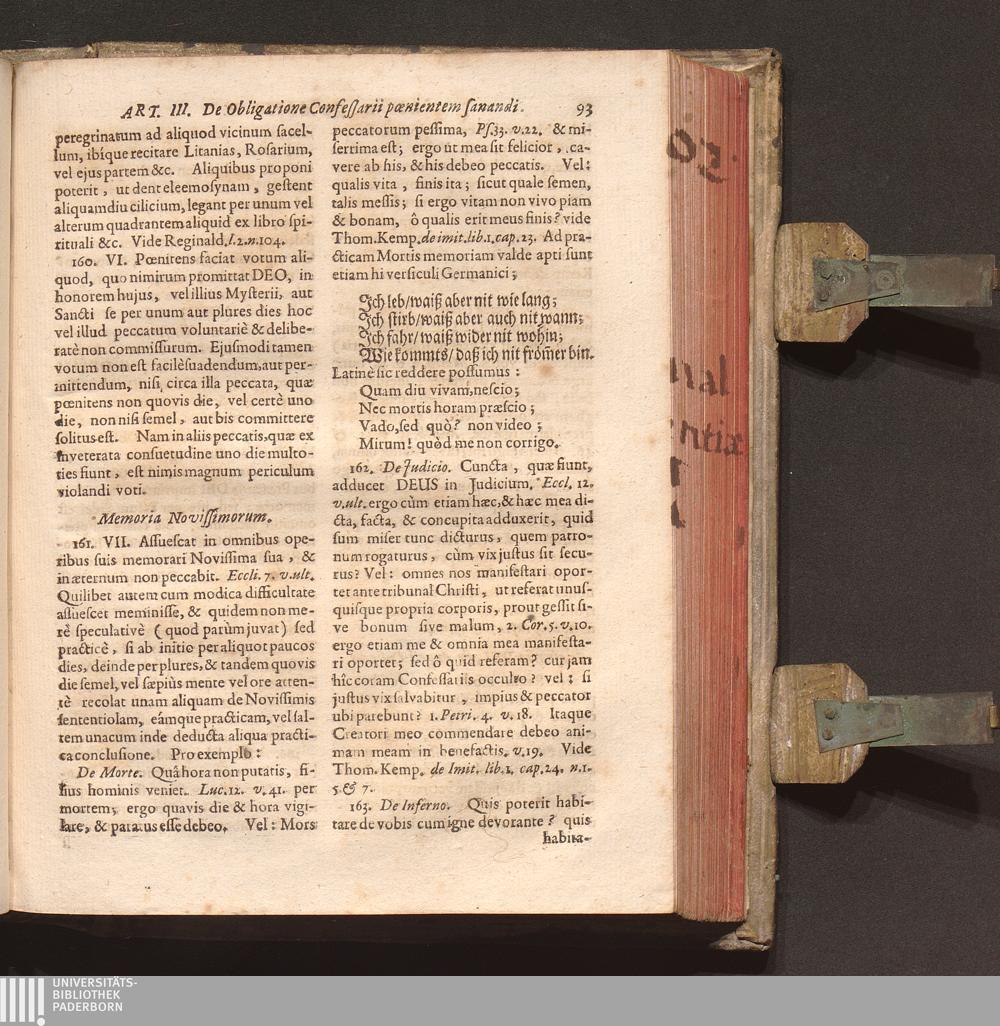 ART. III. De Obligatione Confeſſarii pœnientem ſanandi. 93
peregrinatum ad aliquod vicinum ſacel-
lum, ibíque recitare Litanias, Roſarium,
vel ejus partem &c. Aliquibus proponi
poterit, ut dent eleemoſynam, geſtent
aliquamdiu cilicium, legant per unum vel
alterum quadrantem aliquid ex libro ſpi-
rituali &c. Vide Reginald. l. 2. n. 104.
160. VI. Pœnitens faciat votum ali-
quod, quo nimirum promittat DEO, in
honorem hujus, vel illius Myſterii, aut
Sancti ſe per unum aut plures dies hoc
vel illud peccatum voluntariè & delibe-
ratè non commiſſurum. Ejuſmodi tamen
votum non eſt facilè ſuadendum, aut per-
mittendum, niſi circa illa peccata, quæ
pœnitens non quovis die, vel certè uno
die, non niſi ſemel, aut bis committere
ſolitus eſt. Nam in aliis peccatis, quæ ex
inveterata conſuetudine uno die multo-
ties fiunt, eſt nimis magnum periculum
violandi voti.
Memoria Noviſſimorum.
161. VII. Aſſueſcat in omnibus ope-
ribus ſuis memorari Noviſſima ſua, &
in æternum non peccabit. Eccli. 7. v. ult.
Quilibet autem cum modica difficultate
aſſueſcet meminiſſe, & quidem non me-
rè ſpeculativè (quod parùm juvat) ſed
practicè, ſi ab initio per aliquot paucos
dies, deinde per plures, & tandem quovis
die ſemel, vel ſæpiùs mente vel ore atten-
tè recolat unam aliquam de Noviſſimis
ſententiolam, eámque practicam, vel ſal-
tem unacum inde deducta aliqua practi-
ca concluſione. Pro exemplo:
De Morte. Quâ hora non putatis, fi-
lius hominis veniet. Luc. 12. v. 41. per
mortem; ergo quavis die & hora vigi-
lare, & paratus eſſe debeo. Vel: Mors
peccatorum peſſima, Pſ. 33. v. 22. & mi-
ſerrima eſt; ergo ut mea ſit felicior, ca-
vere ab his, & his debeo peccatis. Vel:
qualis vita, finis ita; ſicut quale ſemen,
talis meſſis; ſi ergo vitam non vivo piam
& bonam, ô qualis erit meus finis? vide
Thom. Kemp. de imit. lib. 1. cap. 23. Ad pra-
cticam Mortis memoriam valde apti ſunt
etiam hi verſiculi Germanici;
Ich leb/waiß aber nit wie lang;
Ich ſtirb/waiß aber auch nit wann;
Ich fahr/waiß wider nit wohin;
Wie kommts/daß ich nit from̃er bin.
Latinè ſic reddere poſſumus:
Quam diu vivam, neſcio;
Nec mortis horam præſcio;
Vado, ſed quò? non video;
Mirum! quòd me non corrigo.
162. De Judicio. Cuncta, quæ fiunt,
adducet DEUS in Judicium. Eccl. 12.
v. ult. ergo cùm etiam hæc, & hæc mea di-
cta, facta, & concupita adduxerit, quid
ſum miſer tunc dicturus, quem patro-
num rogaturus, cùm vix juſtus ſit ſecu-
rus? Vel: omnes nos manifeſtari opor-
tet ante tribunal Chriſti, ut referat unuſ-
quiſque propria corporis, prout geſſit ſi-
ve bonum ſive malum, 2. Cor. 5. v. 10.
ergo etiam me & omnia mea manifeſta-
ri oportet; ſed ô quid referam? cur jam
hîc coram Confeſſariis occulto? vel: ſi
juſtus vix ſalvabitur, impius & peccator
ubi parebunt? 1. Petri. 4. v. 18. Itaque
Creatori meo commendare debeo ani-
mam meam in benefactis. v. 19. Vide
Thom. Kemp. de Imit. lib. 1. cap. 24. n. 1.
5. & 7.
163. De Inferno. Quis poterit habi-
tare de vobis cum igne devorante? quis
habita-
nal
ntiæ
UNIVERSITÄTS-
BIBLIOTHEK
PADERBORN